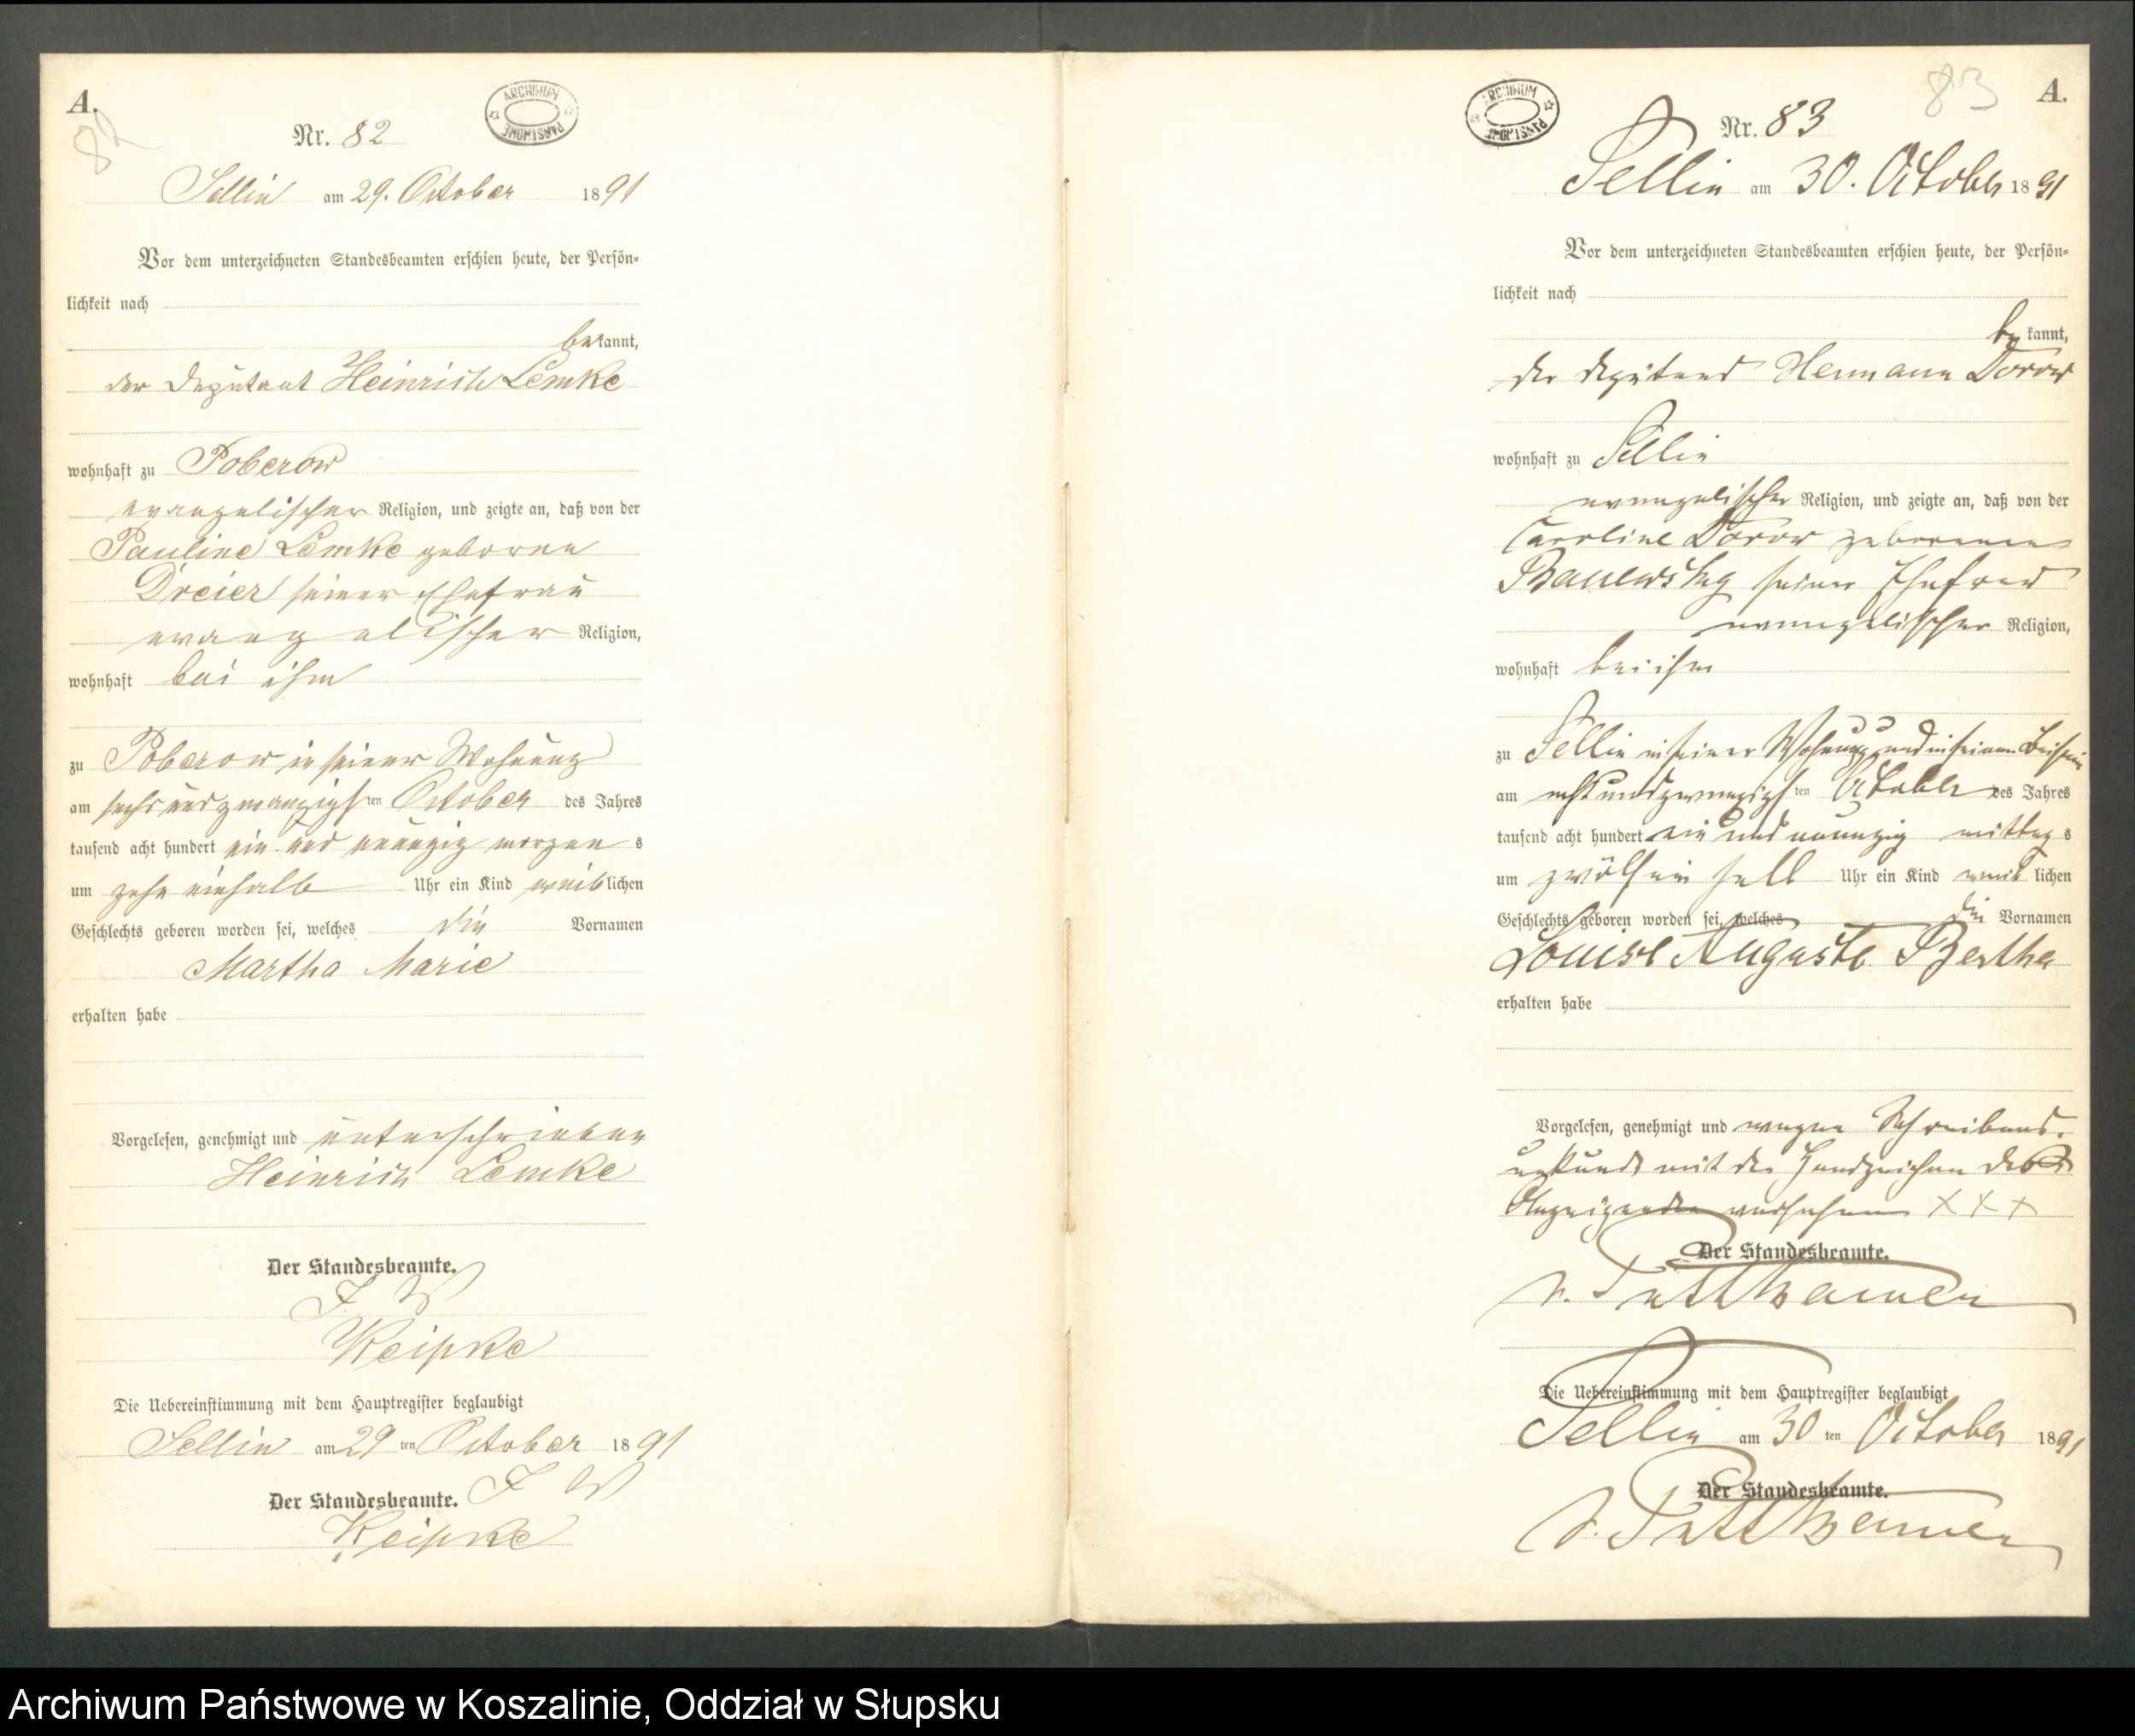 A.
82
ARCHIWUM PAŃSTWOWE
Nr. 82
Sellin am 29. October 1891
Vor dem unterzeichneten Standesbeamten erschien heute, der Persön-
lichkeit nach
bekannt,
der Deputant Heinrich Lemke
wohnhaft zu Poberow
evangelischer Religion, und zeigte an, daß von der
Pauline Lemke geborne
Dreier seiner Ehefrau
evangelischer Religion,
wohnhaft bei ihm
zu Poberow in seiner Wohnung
am sechs und zwanzigsten October des Jahres
tausend acht hundert ein und neunzig morgens
um zehn einhalb Uhr ein Kind weiblichen
Geschlechts geboren worden sei, welches die Vornamen
Martha Marie
erhalten habe
Vorgelesen, genehmigt und unterschrieben
Heinrich Lemke
Der Standesbeamte.
I W
Reipke
Die Uebereinstimmung mit dem Hauptregister beglaubigt
Sellin am 29ten October 1891
Der Standesbeamte. I W
Reipke
83
A.
ARCHIWUM PAŃSTWOWE
Nr. 83
Sellin am 30. October 1891
Vor dem unterzeichneten Standesbeamten erschien heute, der Persön-
lichkeit nach
bekannt,
der Deputant Hermann Dorow
wohnhaft zu Sellin
evangelischer Religion, und zeigte an, daß von der
Caroline Dorow geborenen
seiner Ehefrau
evangelischer Religion,
wohnhaft bei ihm
zu Sellin in seiner Wohnung und in seinem Beisein
am acht und zwanzigsten October des Jahres
tausend acht hundert ein und neunzig mittags
um zwölf ein halb Uhr ein Kind weiblichen
Geschlechts geboren worden sei, welches die Vornamen
Louise Auguste Bertha
erhalten habe
Vorgelesen, genehmigt und wegen Schreibens-
unkunde mit den Handzeichen des
Anzeigenden versehen X X X
Der Standesbeamte.
v. Puttkamer
Die Uebereinstimmung mit dem Hauptregister beglaubigt
Sellin am 30ten October 1891
Der Standesbeamte.
v. Puttkamer
Archiwum Państwowe w Koszalinie, Oddział w Słupsku